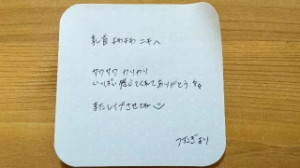 乳首よわよわ ニキへ
サワサワ カリカリ
いっぱい感じてくれてありがとう
また レイプさせてね
つむぎより